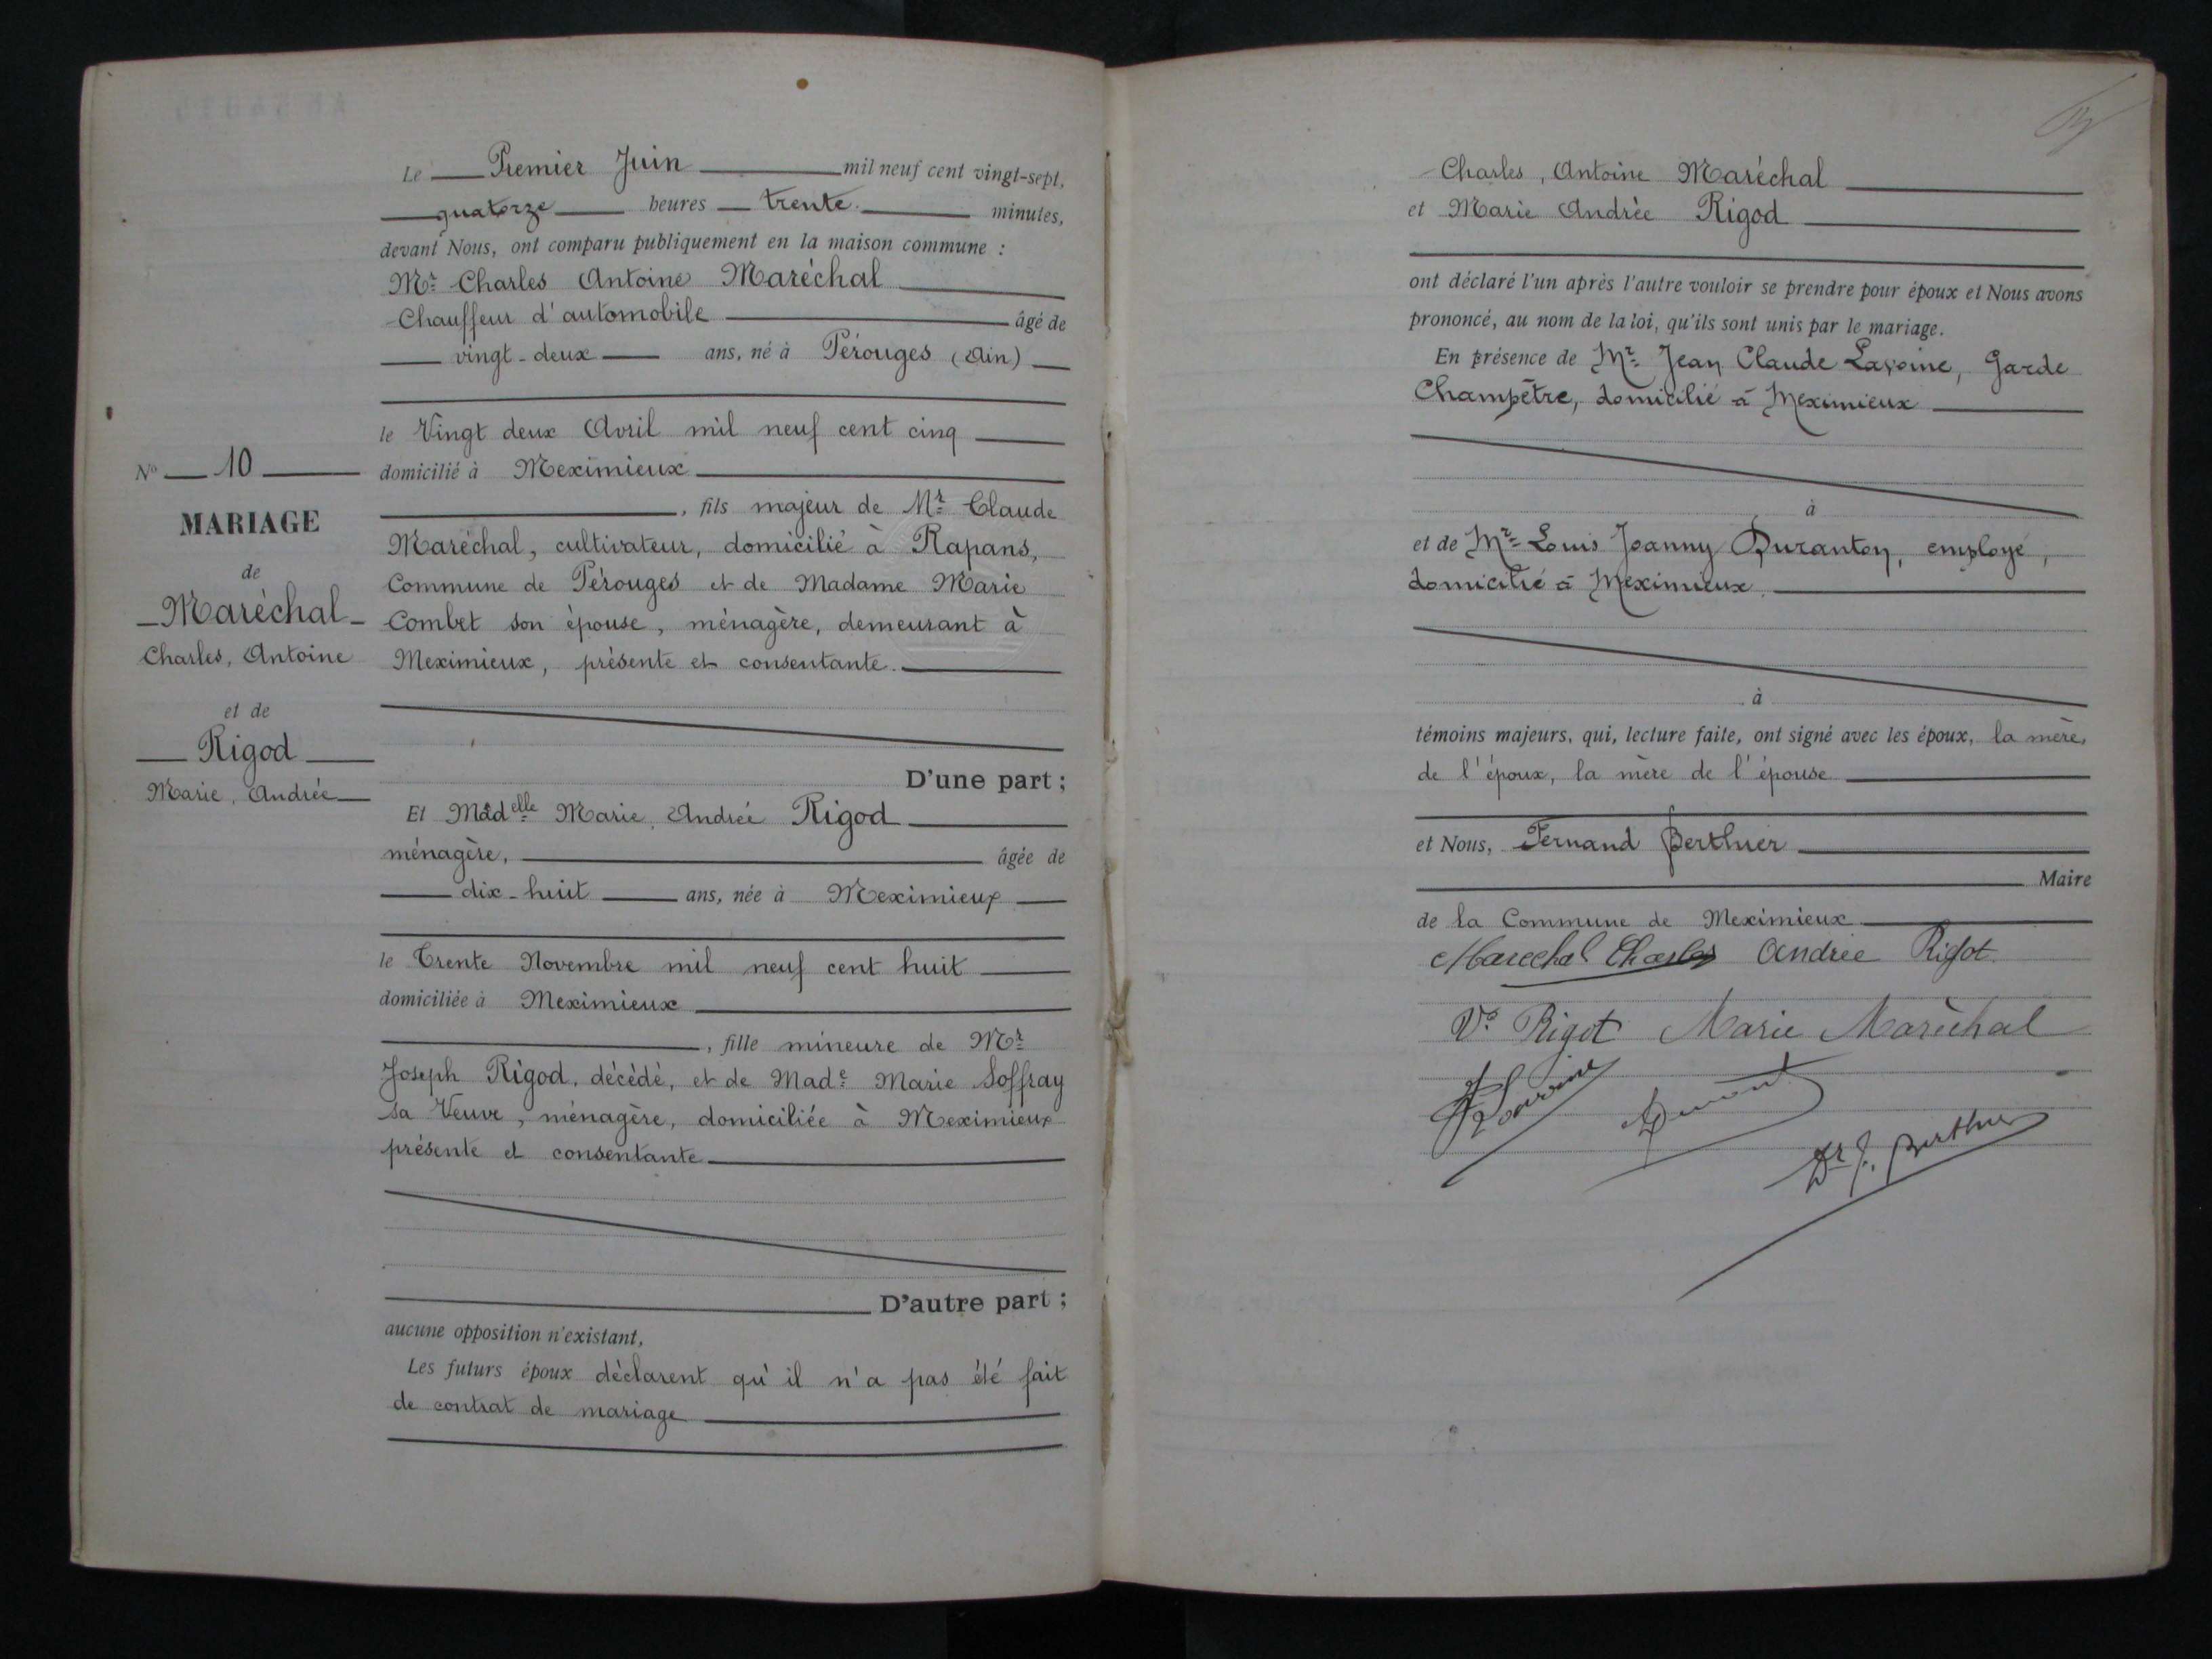 Le Premier Juin mil neuf cent vingt-sept,
quatorze heures trente minutes,
devant Nous, ont comparu publiquement en la maison commune :
Mr Charles Antoine Maréchal
Chauffeur d'automobile âgé de
vingt-deux ans, né à Pérouges (Ain)
le Vingt deux Avril mil neuf cent cinq
domicilié à Meximieux
, fils majeur de Mr Claude
Maréchal, cultivateur, domicilié à Rapans,
Commune de Pérouges et de Madame Marie
Combet son épouse, ménagère, demeurant à
Meximieux, présente et consentante.
D'une part ;
Et Madelle Marie, Andrée Rigod
ménagère, âgée de
dix-huit ans, née à Meximieux
le Trente Novembre mil neuf cent huit
domiciliée à Meximieux
, fille mineure de Mr
Joseph Rigod, décédé, et de Made Marie Soffray
sa Veuve, ménagère, domiciliée à Meximieux
présente et consentante
D'autre part ;
aucune opposition n'existant,
Les futurs époux déclarent qu'il n'a pas été fait
de contrat de mariage
No 10
MARIAGE
de
Maréchal
Charles, Antoine
et de
Rigod
Marie, Andrée
Charles, Antoine Maréchal
et Marie Andrée Rigod
ont déclaré l'un après l'autre vouloir se prendre pour époux et Nous avons
prononcé, au nom de la loi, qu'ils sont unis par le mariage.
En présence de Mr Jean Claude Lavoine, Garde
Champêtre, domicilié à Meximieux
à
et de Mr Louis Joanny Duranton, employé,
domicilié à Meximieux.
à
témoins majeurs, qui, lecture faite, ont signé avec les époux, la mère,
de l'époux, la mère de l'épouse
et Nous, Fernand Berthier
Maire
de la Commune de Meximieux
Marechal Charles Andrée Rigot
Ve Rigot Marie Maréchal
Lavoine
Dr F. Berthier